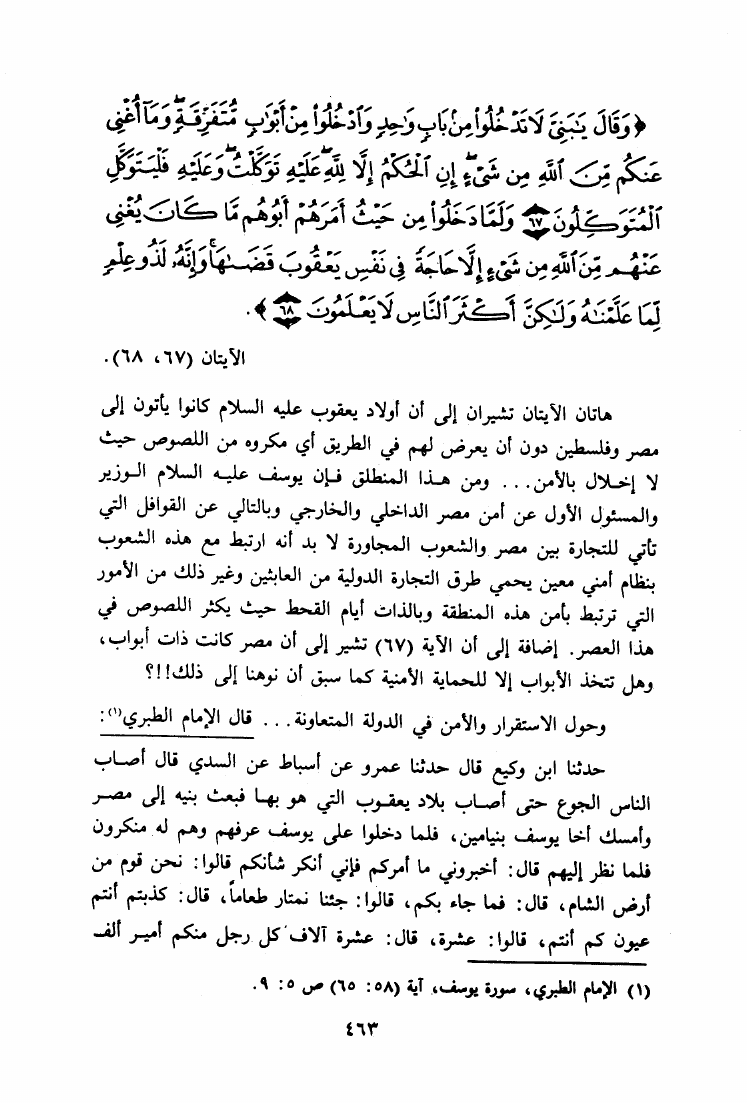 ﴿وَقَالَ يَـٰبَنِىَّ لَا تَدْخُلُوا۟ مِنۢ بَابٍ وَٰحِدٍ وَٱدْخُلُوا۟ مِنْ أَبْوَٰبٍ مُّتَفَرِّقَةٍ ۖ وَمَآ أُغْنِى
عَنكُم مِّنَ ٱللَّهِ مِن شَىْءٍ ۖ إِنِ ٱلْحُكْمُ إِلَّا لِلَّهِ ۖ عَلَيْهِ تَوَكَّلْتُ ۖ وَعَلَيْهِ فَلْيَتَوَكَّلِ
ٱلْمُتَوَكِّلُونَ ٦٧ وَلَمَّا دَخَلُوا۟ مِنْ حَيْثُ أَمَرَهُمْ أَبُوهُم مَّا كَانَ يُغْنِى
عَنْهُم مِّنَ ٱللَّهِ مِن شَىْءٍ إِلَّا حَاجَةً فِى نَفْسِ يَعْقُوبَ قَضَىٰهَا ۚ وَإِنَّهُۥ لَذُو عِلْمٍ
لِّمَا عَلَّمْنَـٰهُ وَلَـٰكِنَّ أَكْثَرَ ٱلنَّاسِ لَا يَعْلَمُونَ ٦٨﴾.
الآيتان (٦٧، ٦٨).
هاتان الآيتان تشيران إلى أن أولاد يعقوب عليه السلام كانوا يأتون إلى
مصر وفلسطين دون أن يعرض لهم في الطريق أي مكروه من اللصوص حيث
لا إخلال بالأمن... ومن هذا المنطلق فإن يوسف عليه السلام الوزير
والمسئول الأول عن أمن مصر الداخلي والخارجي وبالتالي عن القوافل التي
تأتي للتجارة بين مصر والشعوب المجاورة لا بد أنه ارتبط مع هذه الشعوب
بنظام أمني معين يحمي طرق التجارة الدولية من العابثين وغير ذلك من الأمور
التي ترتبط بأمن هذه المنطقة وبالذات أيام القحط حيث يكثر اللصوص في
هذا العصر. إضافة إلى أن الآية (٦٧) تشير إلى أن مصر كانت ذات أبواب،
وهل تتخذ الأبواب إلا للحماية الأمنية كما سبق أن نوهنا إلى ذلك!!؟
وحول الاستقرار والأمن في الدولة المتعاونة... قال الإمام الطبري(١):
حدثنا ابن وكيع قال حدثنا عمرو عن أسباط عن السدي قال أصاب
الناس الجوع حتى أصاب بلاد يعقوب التي هو بها فبعث بنيه إلى مصر
وأمسك أخا يوسف بنيامين، فلما دخلوا على يوسف عرفهم وهم له منكرون
فلما نظر إليهم قال: أخبروني ما أمركم فإني أنكر شأنكم قالوا: نحن قوم من
أرض الشام، قال: فما جاء بكم، قالوا: جئنا نمتار طعاماً، قال: كذبتم أنتم
عيون كم أنتم، قالوا: عشرة، قال: عشرة آلاف كل رجل منكم أمير ألف
(١) الإمام الطبري، سورة يوسف، آية (٥٨: ٦٥) ص ٥: ٩.
٤٦٣